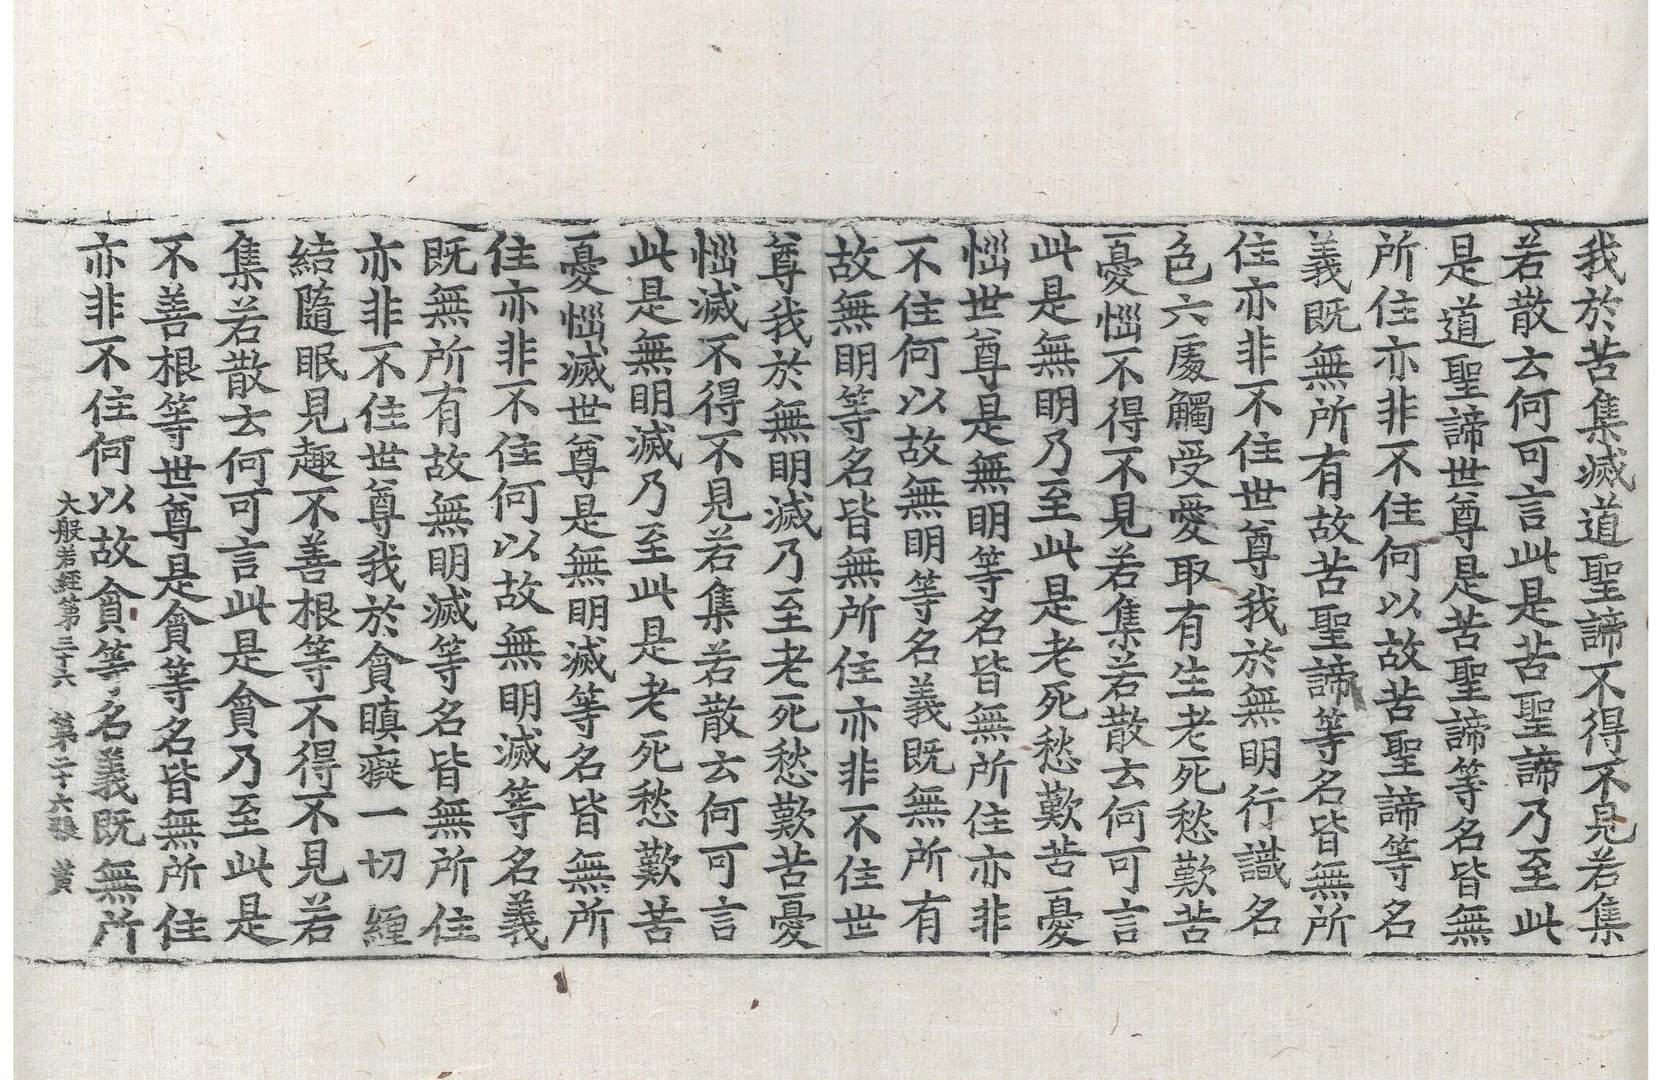 我於苦集滅道聖諦不得不見若集
若散云何可言此是苦聖諦乃至此
是道聖諦世尊是苦聖諦等名皆無
所住亦非不住何以故苦聖諦等名
義既無所有故苦聖諦等名皆無所
住亦非不住世尊我於無明行識名
色六處觸受愛取有生老死愁歎苦
憂惱不得不見若集若散云何可言
此是無明乃至此是老死愁歎苦憂
惱世尊是無明等名皆無所住亦非
不住何以故無明等名義既無所有
故無明等名皆無所住亦非不住世
尊我於無明滅乃至老死愁歎苦憂
惱滅不得不見若集若散云何可言
此是無明滅乃至此是老死愁歎苦
憂惱滅世尊是無明滅等名皆無所
住亦非不住何以故無明滅等名義
既無所有故無明滅等名皆無所住
亦非不住世尊我於貪瞋癡一切纏
結隨眠見趣不善根等不得不見若
集若散云何可言此是貪乃至此是
不善根等世尊是貪等名皆無所住
亦非不住何以故貪等名義既無所
大般若經第三十六 第二十六張 黃